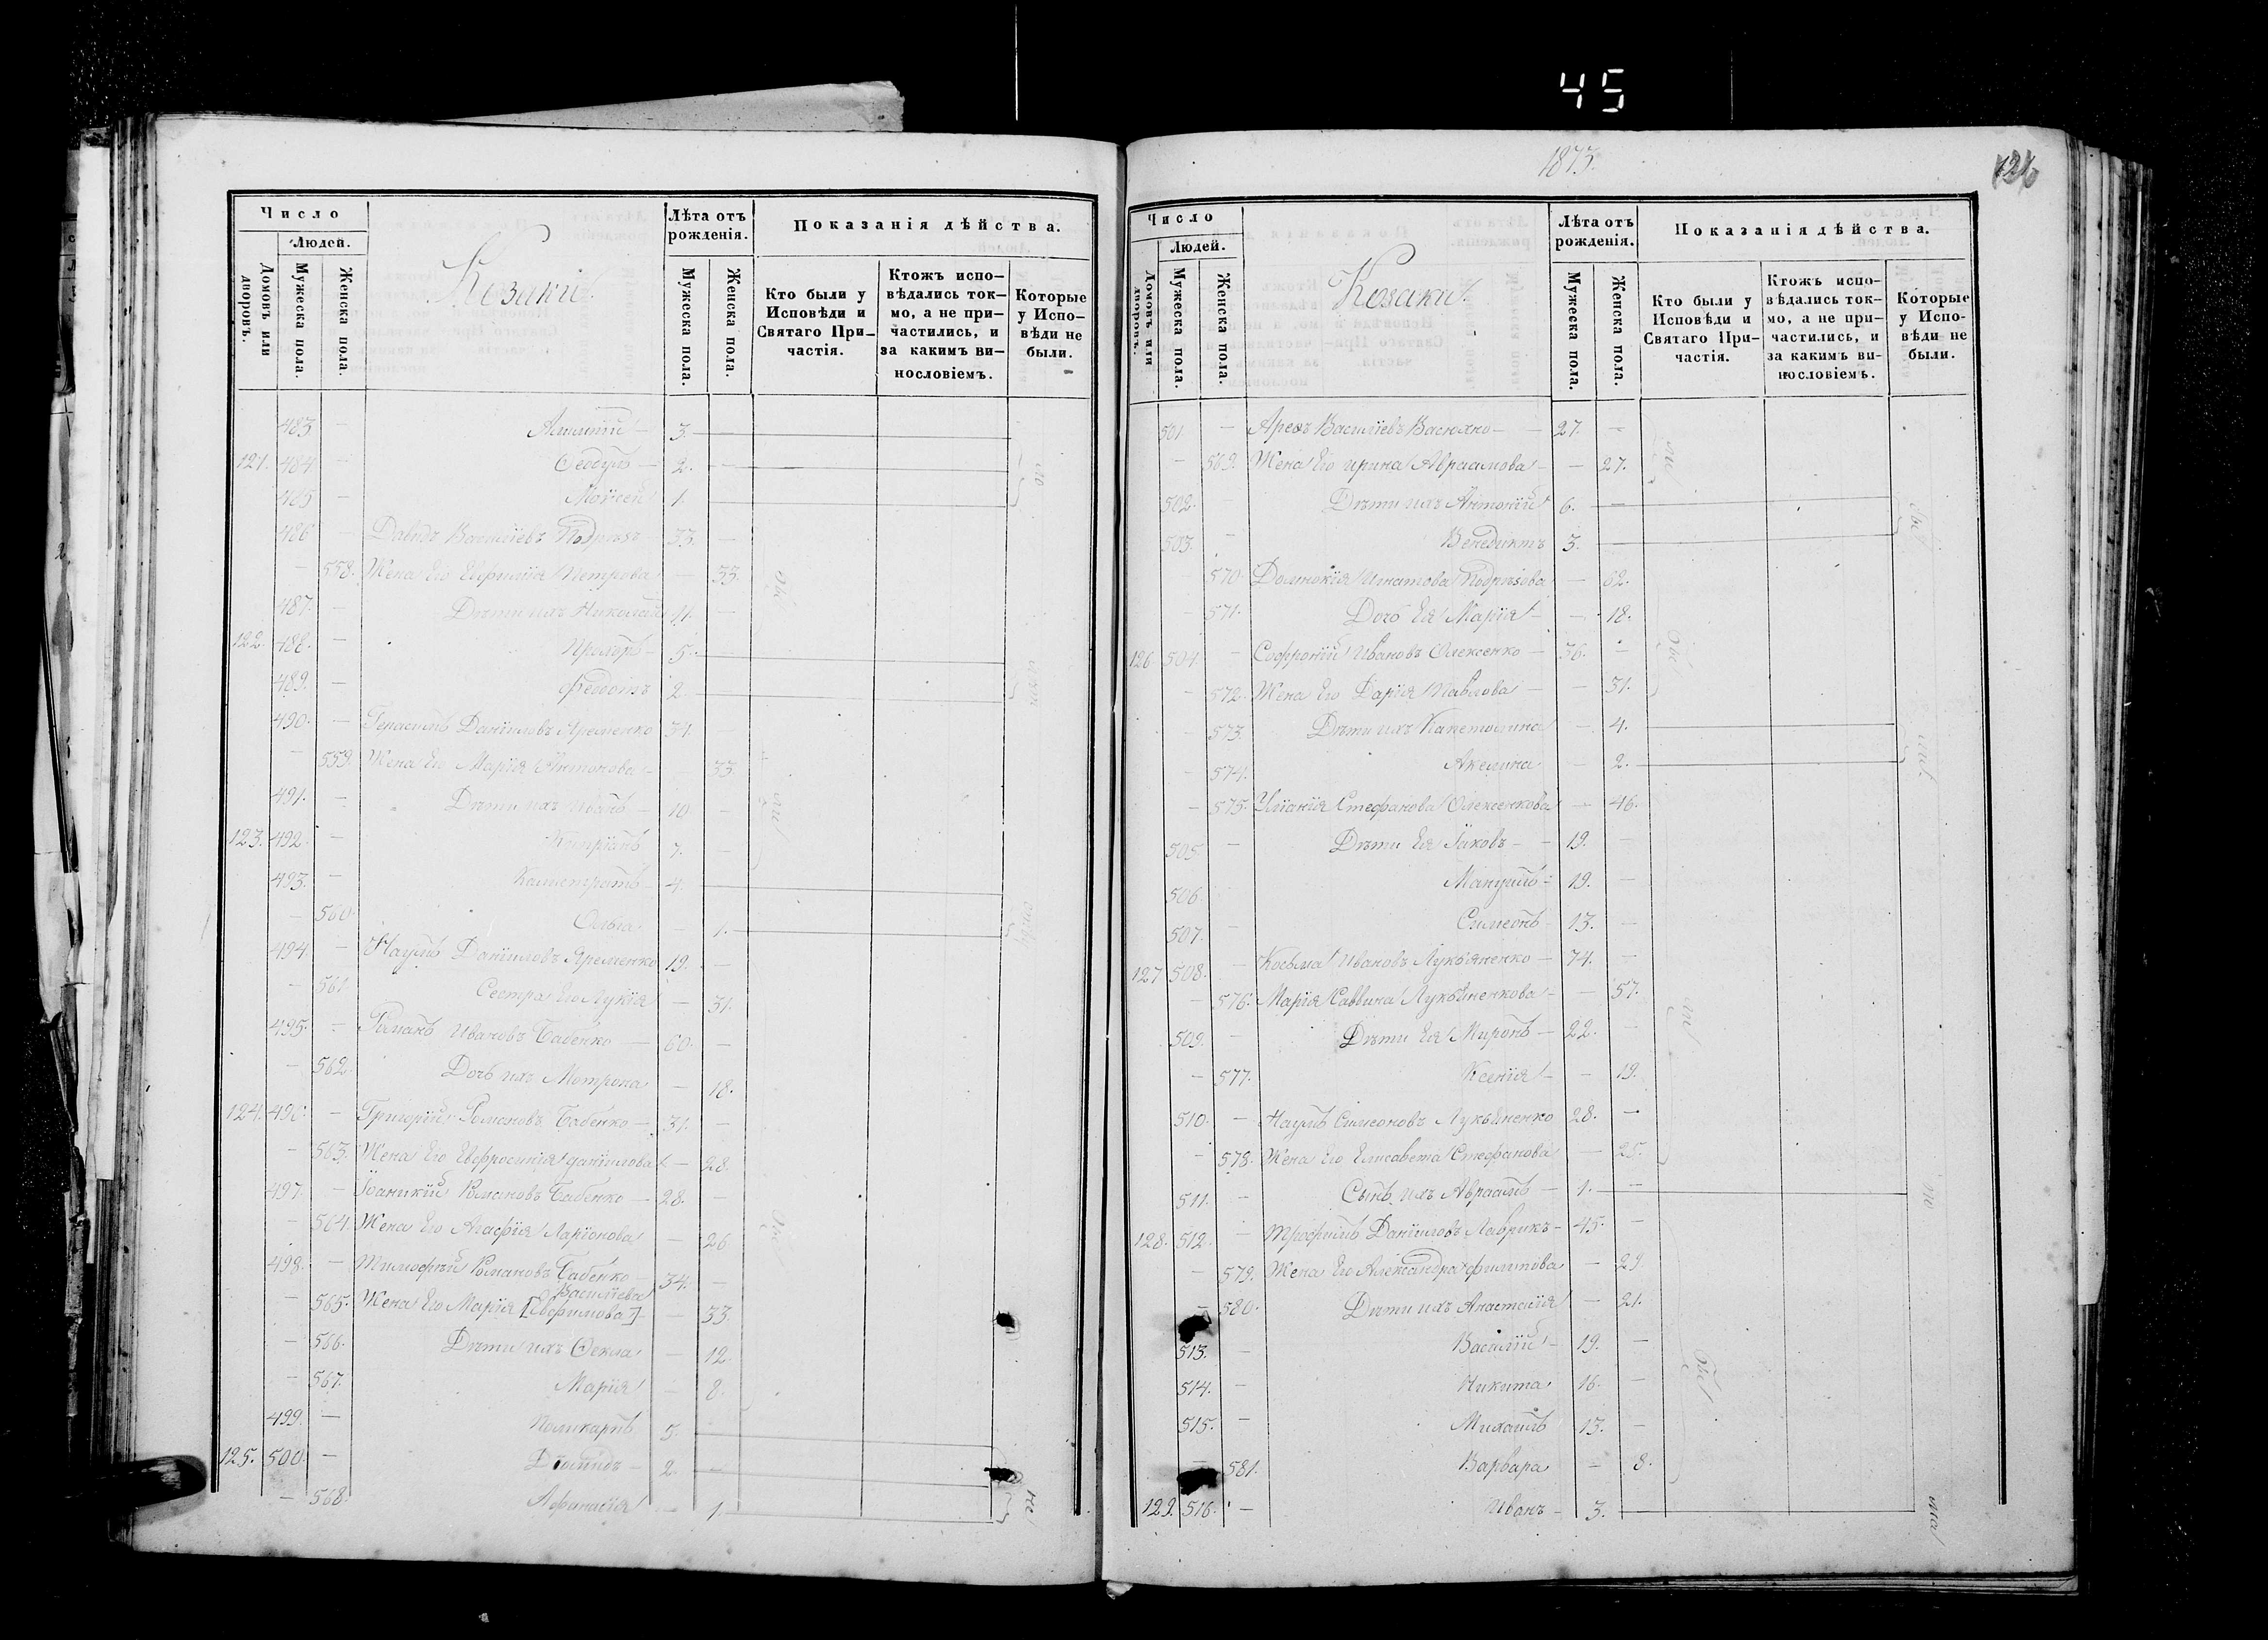 45
Число
Людей.
Домовъ или дворовъ.
Мужеска пола.
Женска пола.
Козаки.
Лѣта отъ рожденія.
Мужеска пола.
Женска пола.
Показанія дѣйства.
Кто были у Исповѣди и Святаго При-частія.
Ктожъ испо-вѣдались ток-мо, а не при-частились, и за какимъ ви-нословіемъ.
Которые у Испо-вѣди не были.
483. — 3.
121. 484. — Ѳеодулъ — 2. —
485 — Моѵсей 1.
486 — Давидъ Василіевъ — 33. —
— 558. Жена Его Петрова — 33.
487. — Дѣти ихъ Николай 11. —
122. 488. — 5.
489. — Феодотъ 2.
490. — Герасимъ Даніиловъ Яременко 31. —
— 559. Жена Его Марія Антонова — 33.
491. — Дѣти ихъ Иванъ — 10. —
123. 492. — Кипріанъ 7. —
493. — Калистратъ — 4.
— 560. Ольга — 1.
494. — Наумъ Даніиловъ Яременко 19. —
— 561 Сестра Его Лукія — 31.
495. — Романъ Ивановъ Бабенко — 60. —
— 562. Дочь ихъ Мотрона — 18.
124. 496. — Григорій Романовъ Бабенко — 31. —
— 563. Жена Его Евфросинія Даніилова — 28.
497. — Іоаникій Романовъ Бабенко — 28. —
— 564. Жена Его Агафія Ларіонова — 26
498. — Тимофѣй Романовъ Бабенко — 34. —
Василіева
— 565. Жена Его Марія [Евфимова] — 33.
— 566. Дѣти ихъ Ѳекла — 12.
— 567. Марія — 8.
499. — Поликарпъ 5.
125. 500. — Діомидъ — 2. —
— 568. Афанасія — 1.
1873.
126
Число
Людей.
Домовъ или дворовъ.
Мужеска пола.
Женска пола.
Козаки.
Лѣта отъ рожденія.
Мужеска пола.
Женска пола.
Показанія дѣйства.
Кто были у Исповѣди и Святаго При-частія.
Ктожъ испо-вѣдались ток-мо, а не при-частились, и за какимъ ви-нословіемъ.
Которые у Испо-вѣди не были.
501. — Василіевъ Васюхно — 27. —
— 569. Жена Его Ирина Авраамова — — 27.
502. — Дѣти ихъ Антоній 6. —
503. — Венедиктъ 3.
— 570. Домникія Игнатова — 62.
— 571. Дочь Ея Марія — — 18.
126 504. — Софроній Ивановъ Олексенко — 36. —
— 572. Жена Его Дарія Павлова — — 31.
— 573. Дѣти ихъ Капетолина — 4.
— 574. Акелина — 2.
— 575. Уліанія Стефанова Олексенкова — 46.
505. — Дѣти Ея Іаковъ — 19. —
506. Мануилъ — 19. —
507. — Симеонъ — 13. —
127 508. — Косьма Ивановъ Лукьяненко — 74. —
— 576. Марія Саввина Лукьяненкова — — 57.
509. — Дѣти Ея Миронъ — 22. —
— 577. Ксенія — — 19.
510. — Наумъ Симеоновъ Лукьяненко 28. —
— 578. Жена Его Елисавета Стефанова — 25.
511. — Сынъ ихъ Авраамъ — 1. —
128. 512. — Трофимъ Даніиловъ Лаврикъ — 45. —
— 579. Жена Его Александра Филипова — 29
— 580. Дѣти ихъ Анастасія — 21.
513. — Василій — 19. —
514. — Никита 16. —
515. — Михаилъ 13. —
— 581. Варвара — 8.
129. 516. — Иванъ — 3. —